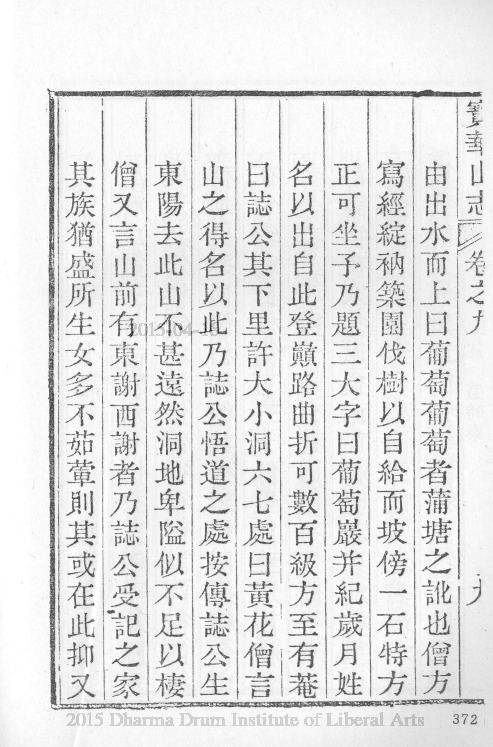 寶華山志 卷之九 九
由出水而上曰葡萄葡萄者蒲塘之訛也僧方
寫經綻衲築園伐樹以自給而坡傍一石特方
正可坐予乃題三大字曰葡萄巖并紀歲月姓
名以出自此登巔路曲折可數百級方至有菴
曰誌公其下里許大小洞六七處曰黃花僧言
山之得名以此乃誌公悟道之處按傳誌公生
東陽去此山不甚遠然洞地卑隘似不足以棲
僧又言山前有東謝西謝者乃誌公受記之家
其族猶盛所生女多不茹葷則其或在此抑又
2015 Dharma Drum Institute of Liberal Arts
372